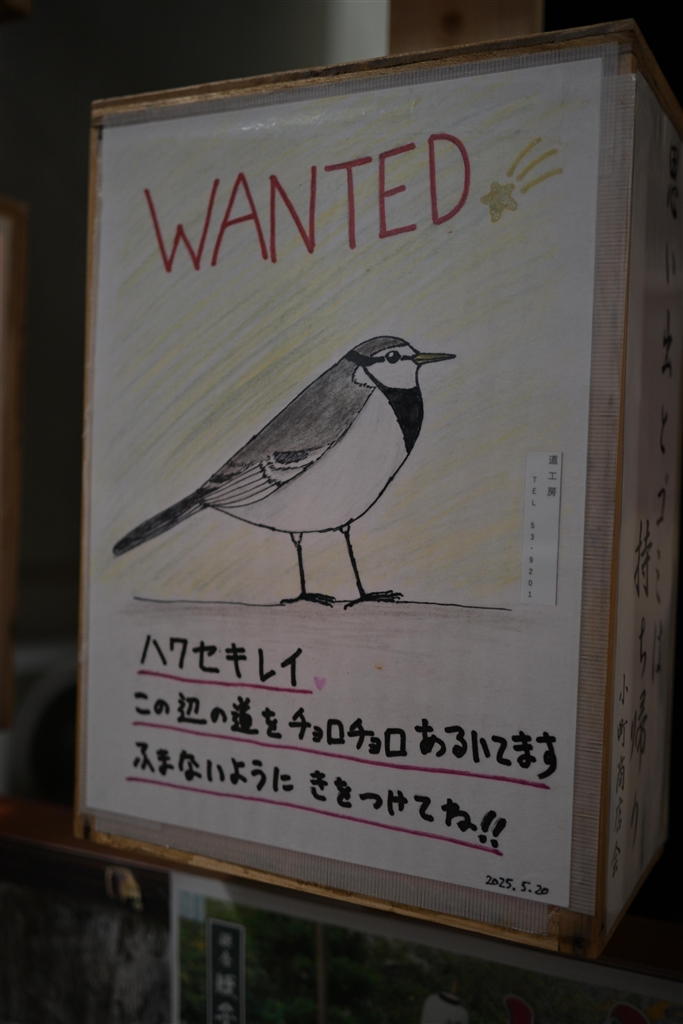 WANTED
ハクセキレイ
この辺の道をチョロチョロあるいてます
ふまないように きをつけてね!!
2025.5.20
道工房
TEL 53-9201
思い出とゴミは
持ち帰り
小町商店会